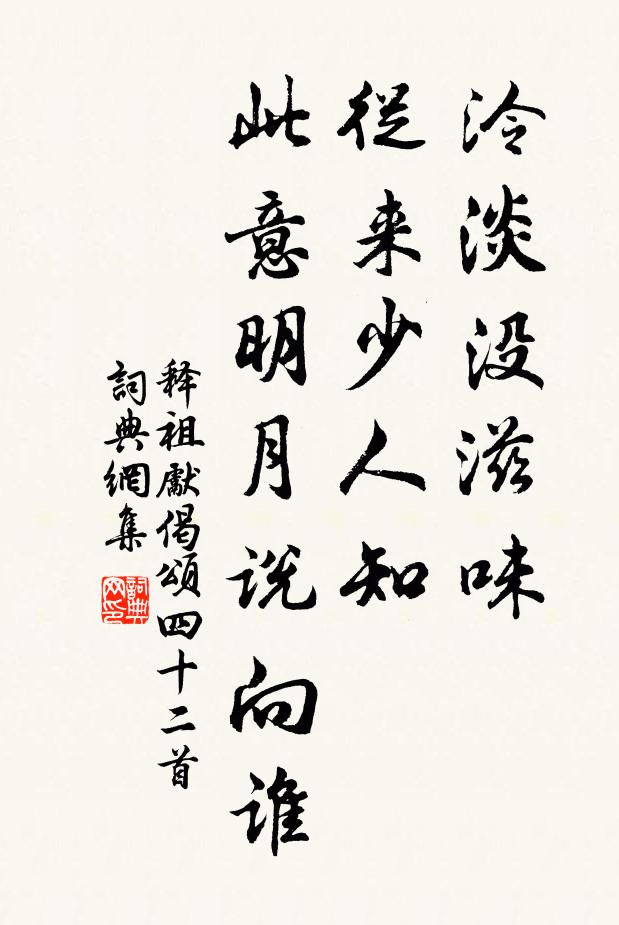 冷淡没滋味
從来少人知
此意明月説向誰
释祖獻偈頌四十二首
詞典網集
詞典网印